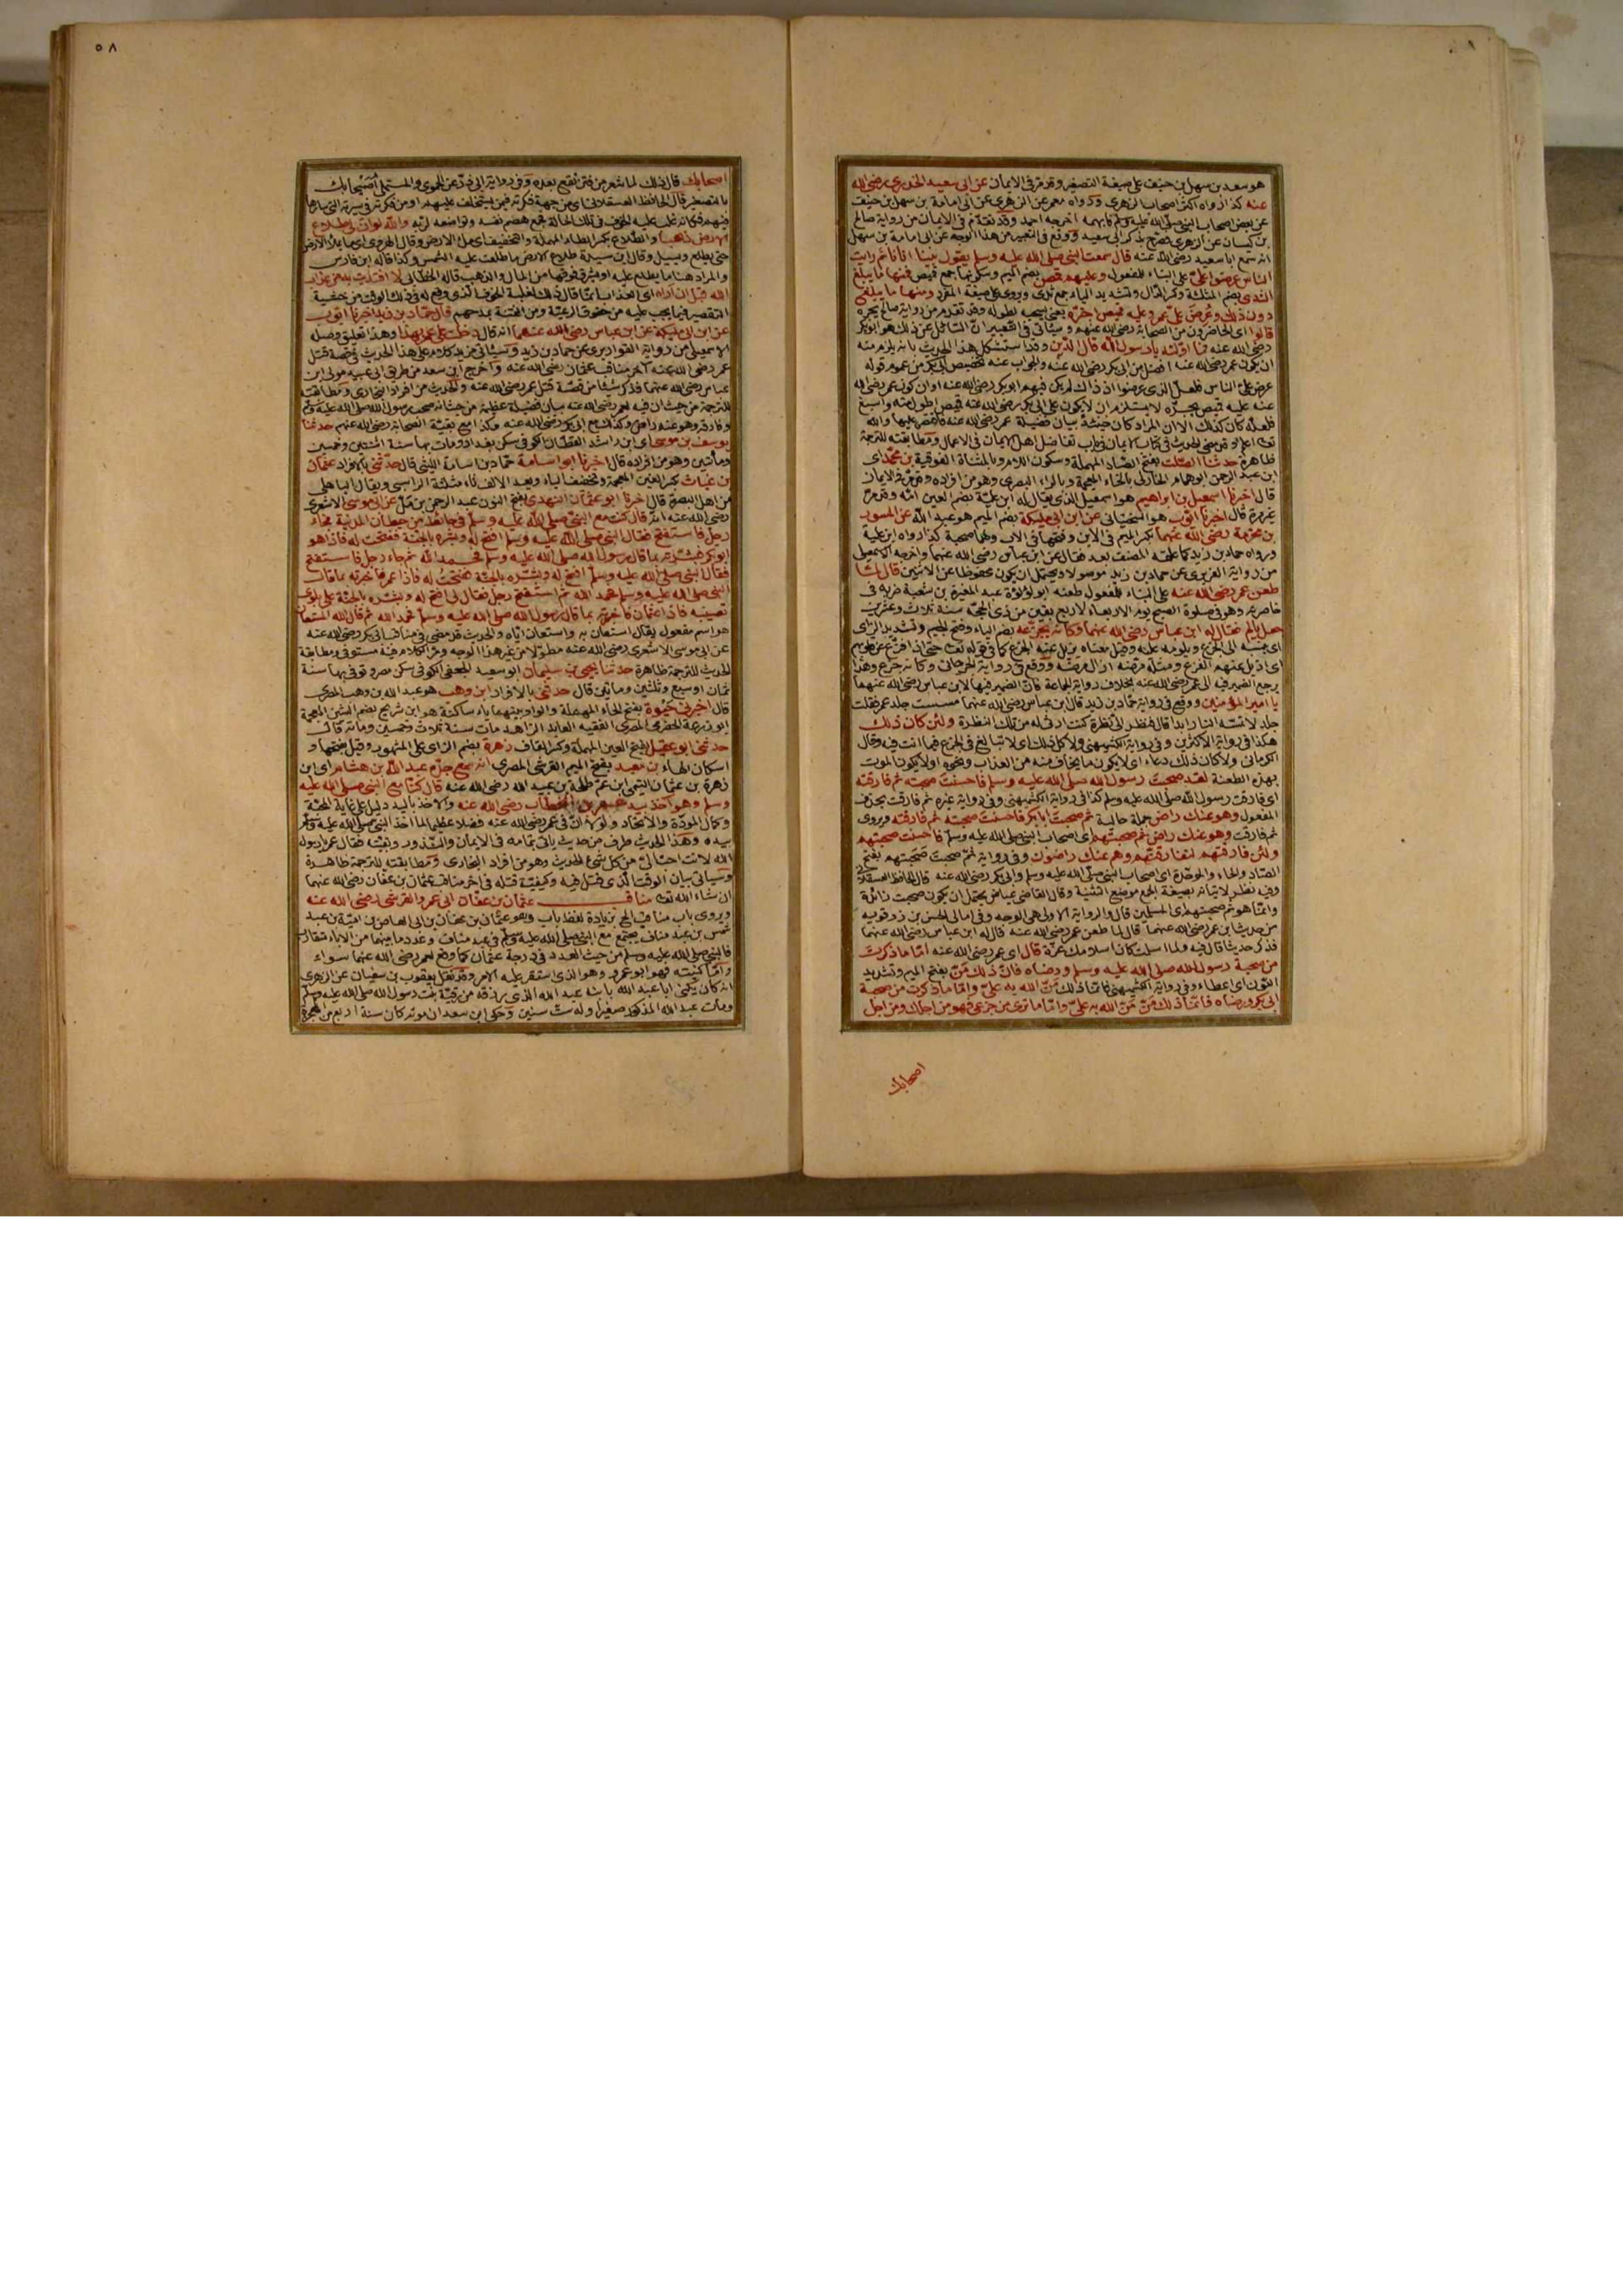 هو سعد بن سهل بن حنيف على صيغة التصغير وقد مر في الايمان عن ابى سعيد الخدرى رضى الله
عنه كذا رواه اكثر اصحاب الزهرى ورواه معمر عن الزهرى عن ابى امامة بن سهل بن حنيف
عن بعض اصحاب النبى صلى الله عليه وسلم فابهمه اخرجه احمد وقد تقدم في الايمان من رواية صالح
بن كيسان عن الزهرى فصرح بذكر ابى سعيد ووقع في التعبير من هذا الوجه عن ابى امامة بن سهل
انه سمع ابا سعيد رضى الله عنه قال سمعت النبى صلى الله عليه وسلم يقول بينا انا نائم رايت
الناس عرضوا علىّ على البناء للمفعول وعليهم قمص بضم الميم وسكونها جمع قميص فمنها ما يبلغ
الثدى بضم المثلثة وكسر الدال وتشديد الياء جمع ثدى ويروى على صيغة المفرد ومنها ما يبلغ
دون ذلك وعُرض علىّ عمر وعليه قميص اجترّه يعنى يسحبه لطوله وقد تقدم من رواية صالح يجره
قالوا اى الحاضرون من الصحابة رضى الله عنهم وسيأتى في التعبير انّ السائل عن ذلك هو ابو بكر
رضى الله عنه فما اوّلته يا رسول الله قال الدّين وقد استشكل هذا الحديث بانه يلزم منه
ان يكون عمر رضى الله عنه افضل من ابى بكر رضى الله عنه والجواب عنه تخصيص ابى بكر من عموم قوله
عرض علىّ الناس فلعلّ الذى عرضوا اذ ذاك لم يكن فيهم ابو بكر رضى الله عنه او ان كون عمر رضى الله
عنه عليه قميص يجرّه لا يستلزم ان لا يكون على ابى بكر رضى الله عنه قميص اطول منه واسبغ
فلعله كان كذلك الا ان المراد كان حينئذ بيان فضيلة عمر رضى الله عنه فاقتصر عليها والله
تعا اعلم وقد مضى الحديث في كتاب الايمان في باب تفاضل اهل الايمان في الاعمال ومطابقته للترجمة
ظاهرة حدثنا الصّلت بفتح الصاد المهملة وسكون اللام وبالمثناة الفوقية بن محمّد اى
ابن عبد الرحمن ابو همام الخاركى بالخاء المعجمة وبالراء البصرى وهو من افراده وقد مرّ في الايمان
قال اخبرنا اسمعيل بن ابراهيم هو اسمعيل الذى يقال له ابن عليّة بضم العين امّه وقد مرّ
غير مرة قال اخبرنا ايوّب هو السّختيانى عن ابن ابى مليكة بضم الميم هو عبد الله عن المسور
بن مخرمة رضى الله عنهما بكسر الميم في الابن وفتحها في الاب ولهما صحبة كذا رواه ابن علية
ورواه حماد بن زيد كما علقه المصنف بعد فقال عن ابن عباس رضى الله عنهما واخرجه الاسمعيلى
من رواية القواريرى عن حماد بن زيد موصولا ويحتمل ان يكون محفوظا عن الاثنين قال لمّا
طعن عمر رضى الله عنه على البناء للمفعول طعنه ابو لؤلؤة عبد المغيرة بن شعبة ضربه في
خاصرته وهو في صلوة الصبح يوم الاربعاء لاربع بقين من ذى الحجّة سنة ثلاث وعشرين
جعل يألم فقال له ابن عباس رضى الله عنهما وكانّه يجزّعه بضم الياء وفتح الجيم وتشديد الزاى
اى ينسبه الى الجزع ويلومه عليه وقيل معناه يزيل عنه الجزع كما في قوله تعا حتى اذا فزّع عن قلوبهم
اى ازيل عنهم الفزع ومثله مرّضه اذا ازال مرضه ووقع في رواية الجرجانى وكانه جزع وهذا
يرجع الضمير فيه الى عمر رضى الله عنه بخلاف رواية الجماعة فانّ الضمير فيها لابن عباس رضى الله عنهما
يا امير المؤمنين ووقع في رواية حمّاد بن زيد قال ابن عباس رضى الله عنهما مسست جلد عمر فقلت
جلد لا تمسّه النار ابدا قال فنظر الىّ نظرة كنت ارثى له من تلك النظرة ولئن كان ذلك
هكذا في رواية الاكثرين وفي رواية الكشميهنى ولا كل ذلك اى لا تبالغ في الجزع فيما انت فيه وقال
الكرمانى ولا كان ذلك دعاء اى لا يكون ما يخاف منه من العذاب ونحوه اولا يكون الموت
بهذه الطعنة لقد صحبت رسول الله صلى الله عليه وسلم فاحسنت صحبته ثم فارقته
اى فارقت رسول الله صلى الله عليه وسلم كذا في رواية الكشميهنى وفي رواية غيره ثم فارقت بحذف
المفعول وهو عنك راض جملة حالية ثم صحبت ابا بكر فاحسنت صحبته ثم فارقته ويروى
ثم فارقت وهو عنك راض ثم صحبتهم اى اصحاب النبى صلى الله عليه وسلم فاحسنت صحبتهم
ولئن فارقتهم لتفارقنّهم وهم عنك راضون وفي رواية ثم صحبت صَحَبتهم بفتح
الصّاد والحاء والموحّدة اى اصحاب النبى صلى الله عليه وسلم وابى بكر رضى الله عنه قال الحافظ العسقلانى
وفيه نظر لاتيانه بصيغة الجمع موضع التثنية وقال القاضى عياض يحتمل ان يكون صحبت زائدة
وانما هو ثم صحبتهم اى المسلمين قال والرواية الاولى هى الوجه وفي امالى ابى الحسن بن زرقويه
من حديث ابن عمر رضى الله عنهما قال لما طعن عمر رضى الله عنه قال له ابن عباس رضى الله عنهما
فذكر حديثا قال فيه ولما اسلمت كان اسلامك عزّة قال اى عمر رضى الله عنه امّا ما ذكرت
من صحبة رسول الله صلى الله عليه وسلم ورضاه فانّ ذلك مَنّ بفتح الميم وتشديد
النّون اى اعطاء وفي رواية الكشميهنى فانّما ذلك مَنّ الله به علىّ وامّا ما ذكرت من صحبة
ابى بكر ورضاه فانّما ذلك مَنّ مَنّ الله به علىّ وامّا ما ترى من جزعى فهو من اجلك ومن اجل
اصحابك
٥٨
اصحابك قال ذلك لما شعر من فتن تقع بعده وفي رواية ابى ذرّ عن الحموى والمستملى اُصَيحابك
بالتصغير قال الحافظ العسقلانى اى من جهة فكرته فيمن يستخلف عليهم او من فكرته في سيرته التى سارها
فيهم فكانه غلب عليه الخوف في تلك الحالة مع هضم نفسه وتواضعه لربه والله لو انّ لى طلاع
الارض ذهبا والطّلاع بكسر الطاء المهملة والتخفيف اى ملأ الارض وقال الهروى اى ما يملأ الارض
حتى يطلع ويسيل وقال ابن سيدة طلاع الارض ما طلعت عليه الشمس وكذا قاله ابن فارس
والمراد هنا ما يطلع عليه ويشرق فوقها من المال والذهب قاله الخطّابى لافتديت به من عذاب
الله قبل ان اراه اى العذاب انما قال ذلك لغلبة الخوف الذى وقع له في ذلك الوقت من خشية
التقصير فيما يجب عليه من حقوق الرعيّة ومن الفتنة بمدحهم قال حمّاد بن زيد اخبرنا ايوب
عن ابن ابى مليكة عن ابن عباس رضى الله عنهما انه قال دخلت على عمر بهذا وهذا تعليق وصله
الاسمعيلى من رواية القواريرى عن حماد بن زيد وسيأتى مزيد كلام على هذا الحديث في قصة قتل
عمر رضى الله عنه آخر مناقب عثمان رضى الله عنه واخرج ابن سعد من طريق ابى عبيد مولى ابن
عباس رضى الله عنهما فذكر شيئا من قصّة قتل عمر رضى الله عنه والحديث من افراد البخارى ومطابقته
للترجمة من حيث ان فيه لعمر رضى الله عنه بيان فضيلة عظيمة من حيث انه صحب رسول الله صلى الله عليه وسلم
وفارقه وهو عنه راض وكذلك مع ابى بكر رضى الله عنه وكذا مع بقيّة الصحابة رضى الله عنهم حدثنا
يوسف بن موسى اى ابن راشد القطّان الكوفى سكن بغداد ومات بها سنة اثنتين وخمسين
ومأتين وهو من افراده قال اخبرنا ابو اسامة حمّاد بن اسامة الليثى قال حدّثنى بالافراد عثمان
بن غياث بكسر الغين المعجمة وتخفيف الياء وبعد الالف ثاء مثلثة الراسبى ويقال الباهلى
من اهل البصرة قال اخبرنا ابو عثمان النهدى بفتح النون عبد الرحمن بن ملّ عن ابى موسى الاشعرى
رضى الله عنه انّه قال كنت مع النبى صلى الله عليه وسلم في حائط من حيطان المدينة فجاء
رجل فاستفتح فقال النبى صلى الله عليه وسلم افتح له وبشّره بالجنّة ففتحت له فاذا هو
ابو بكر فبشّرته بما قال رسول الله صلى الله عليه وسلم فحمد الله ثم جاء رجل فاستفتح
فقال النبى صلى الله عليه وسلم افتح له وبشّره بالجنّة ففتحت له فاذا عمر فاخبرته بما قال
النبى صلى الله عليه وسلم فحمد الله ثم استفتح رجل فقال لى افتح له وبشّره بالجنّة على بلوى
تصيبه فاذا عثمان فاخبرته بما قال رسول الله صلى الله عليه وسلم فحمد الله ثم قال الله المستعان
هو اسم مفعول يقال استعان به واستعان ايّاه والحديث قد مضى في مناقب ابى بكر رضى الله عنه
عن ابى موسى الاشعرى رضى الله عنه مطوّلا من غير هذا الوجه ومرّ الكلام فيه مستوفى ومطابقة
الحديث للترجمة ظاهرة حدثنا يحيى بن سليمان ابو سعيد الجعفى الكوفى سكن مصر وتوفى بها سنة
ثمان او سبع وثلثين ومأتين قال حدثنى بالافراد ابن وهب هو عبد الله بن وهب المصرى
قال اخبرنى حَيْوة بفتح الحاء المهملة والواو بينهما ياء ساكنة هو ابن شريح بضم الشين المعجمة
ابو زرعة الحضرمى المصرى الفقيه العابد الزاهد مات سنة ثلاث وخمسين ومأة قال
حدثنى ابو عَقيل بفتح العين المهملة وكسر القاف زهرة بضم الزاى على المشهور وقيل بفتحها و
اسكان الهاء بن معبد بفتح الميم القرشى المصرى انه سمع جدّه عبد الله بن هشام اى ابن
زهرة بن عثمان التيمى ابن عمّ طلحة بن عبيد الله رضى الله عنه قال كنّا مع النبى صلى الله عليه
وسلم وهو آخذ بيد عمر بن الخطّاب رضى الله عنه والاخذ باليد دليل على غاية المحبّة
وكمال المودّة والاتحاد ولولا انّ في عمر رضى الله عنه فضلا عظيما لما اخذ النبى صلى الله عليه وسلم
بيده وهذا الحديث طرف من حديث يأتى بتمامه في الايمان والنّذور وبقيّته فقال عمر يا رسول
الله لانت احبّ الىّ من كل شئ الحديث وهو من افراد البخارى ومطابقته للترجمة ظاهرة
وسيأتى بيان الوقت الّذى قتل فيه وكيفيّة قتله في اخر مناقب عثمان بن عفّان رضى الله عنهما
ان شاء الله تعا مناقب عثمان بن عفّان ابى عمرو القرشى رضى الله عنه
ويروى باب مناقب الخ بزيادة لفظ باب وهو عثمان بن عفّان بن ابى العاص بن اميّة بن عبد
شمس بن عبد مناف يجتمع مع النبى صلى الله عليه وسلم في عبد مناف وعدد ما بينهما من الاباء متقارب
فالنبى صلى الله عليه وسلم من حيث العدد في درجة عفّان كما وقع لعمر رضى الله عنهما سواء
وامّا كنيته فهو ابو عمرو وهو الذى استقر عليه الامر وقد نقل يعقوب بن سفيان عن الزهرى
انه كان يكنى ابا عبد الله بابنه عبد الله الذى رزقه من رقيّة بنت رسول الله صلى الله عليه وسلم
ومات عبد الله المذكور صغيرا وله ستّ سنين وحكى ابن سعد ان موته كان سنة اربع من الهجرة